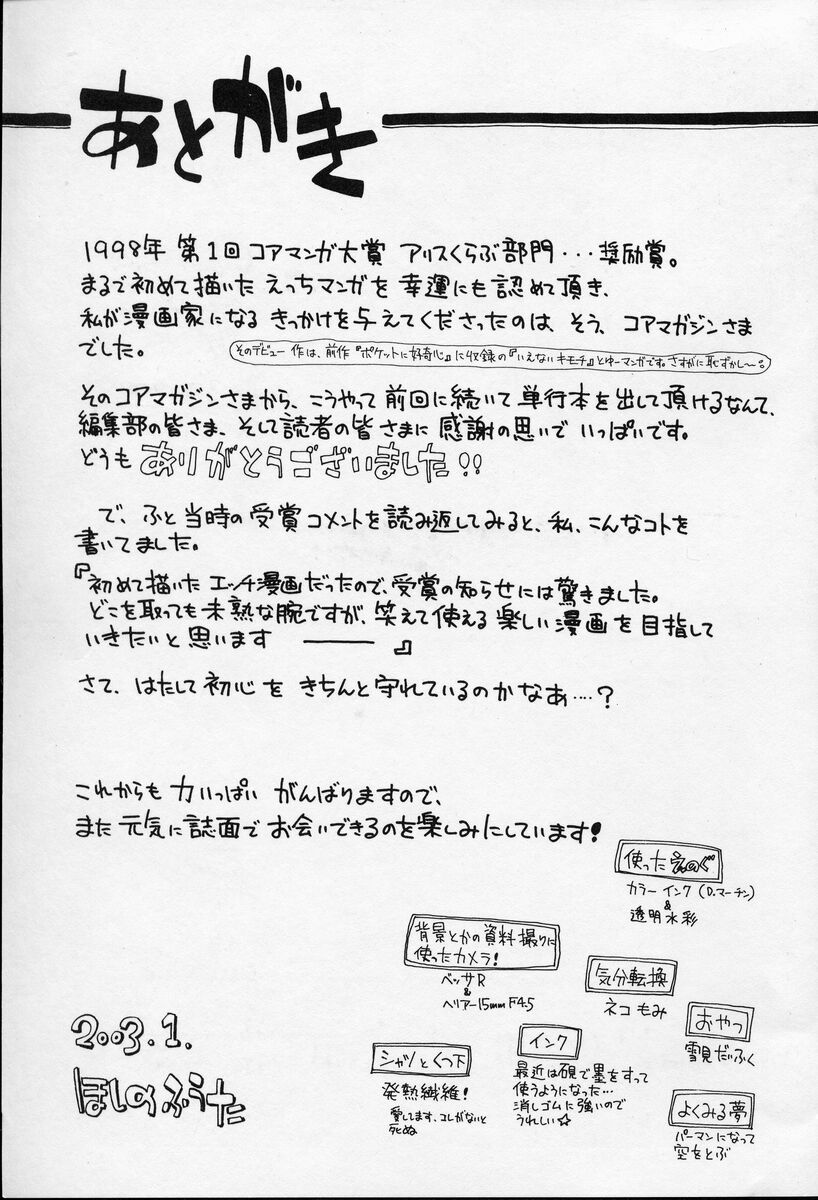 あとがき
1998年 第1回 コアマンガ大賞 アリスくらぶ部門・・・奨励賞。
まるで初めて描いた えっちマンガを 幸運にも認めて頂き、
私が漫画家になる きっかけを与えてくださったのは、そう、コアマガジンさま
でした。
そのデビュー作は、前作『ポケットに好奇心』に収録の『いえないキモチ』とゆーマンガです。さすがに恥ずかし〜。
そのコアマガジンさまから、こうやって前回に続いて単行本を出して頂けるなんて、
編集部の皆さま、そして読者の皆さまに 感謝の思いで いっぱいです。
どうも ありがとうございました!!
で、ふと当時の受賞コメントを読み返してみると、私、こんなコトを
書いてました。
『初めて描いた エッチ漫画だったので、受賞の知らせには驚きました。
どこを取っても未熟な腕ですが、笑えて使える楽しい漫画を目指して
いきたいと思います ――』
さて、はたして初心を きちんと守れているのかなぁ…・?
これからも 力いっぱい がんばりますので、
また 元気に誌面で お会いできるのを楽しみにしています!
使ったえのぐ
カラーインク (D.マーチン)
&
透明水彩
背景とかの資料撮りに
使ったカメラ!
ベッサR
&
ヘリアー15mm F4.5
気分転換
ネコもみ
おやつ
雪見だいふく
シャツとくつ下
発熱繊維!
愛してます、コレがないと
死ぬ
インク
最近は硯で墨をすって
使うようになった…
消しゴムに強いので
うれしい☆
よくみる夢
パーマンになって
空をとぶ
2003.1.
ほしのふうた